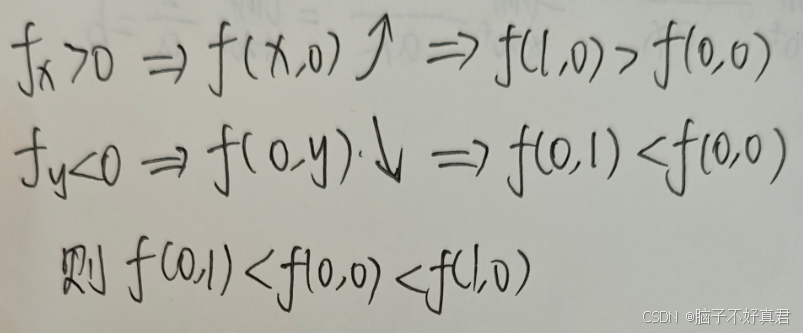 fx>0 ⇒ f(x,0)↑ ⇒ f(1,0)>f(0,0)
fy<0 ⇒ f(0,y)↓ ⇒ f(0,1)<f(0,0)
则 f(0,1)<f(0,0)<f(1,0)
CSDN @脑子不好真君